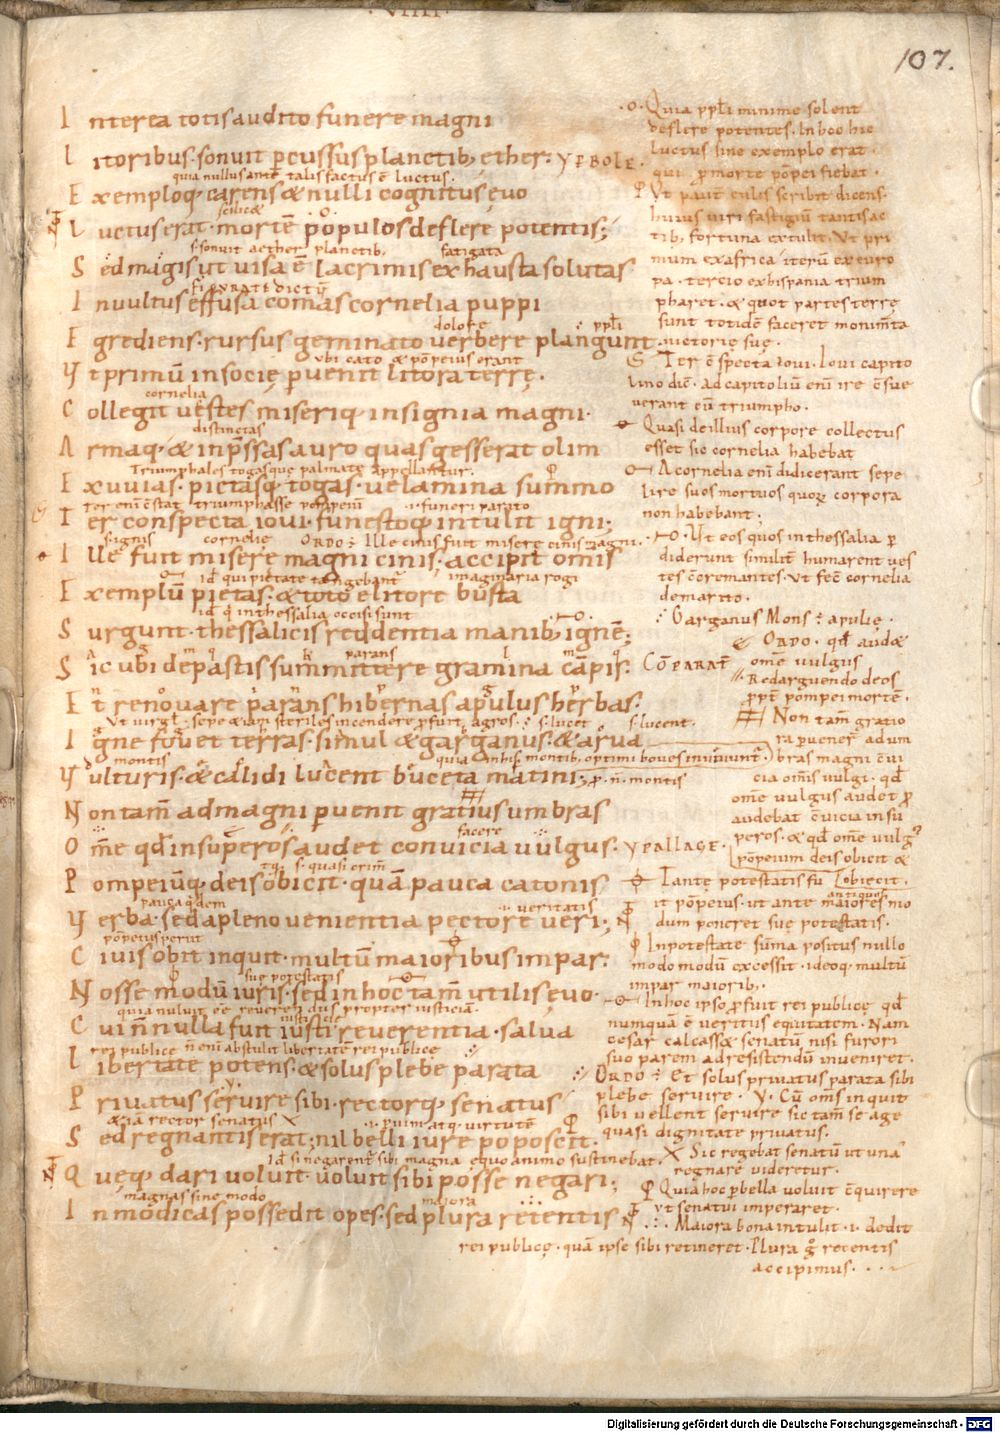 · VIIII ·
107.
I nterea totis audito funere magni
L itoribus · sonuit pcussus planctib; ether · YPBOLE ·
quia nullus ante talis factus ē luctus ·
E xemploq; carens & nulli cognitus ęvo
scilic&
L uctus erat · mortē populos deflere potentis;
s · sonuit aether planctib; fatigata
S ed magis ut visa ē lacrimis exhausta solutas
FIGURATE DICTŪ
I n vultus effusa comas cornelia puppi
dolore ppłi
E grediens · rursus geminato verbere plangunt ·
ubi cato & pōpeius erant
V t primū in socię pvenit litora terrę ·
cornelia
C ollegit vestes miseriq; insignia magni ·
distinctas
A rmaq; & inpssas auro quas gesserat olim
Triumphales togasque palmate appellantur ·
E xuvias · pictasq; togas · velamina summo
Ter eni cstat triumphasse pompeiū · i · funeri parato
T er conspecta iovi · funestoq; intulit igni;
cornelie ORDO : Ille cinis fuit miserę cinis magni ·
I lle fuit miserę magni cinis; accipit omis
id qui pietate tangebant imaginaria rogi
E xemplū pietas · & toto e litore busta
id q in thessalia occisi sunt
S urgunt · thessalicis reddentia manib; ignē;
parans
S ic ubi depastis summittere gramina cāpis · CŌPARAT
E t renovare parans hibernas apulus herbas ·
Ut virgł · sepe &iam steriles incendere pfuit agros · s · lucet s · lucent ·
I gne fovet terras · simul & garganus · & arva
montis quia in his montib; optimi boves inveniunt
V ulturis · & calidi lucent buceta matini; p · n · montis
N on tam ad magni pvenit gratius umbras
facere
O me qd in superos audet convicia vulgus · YPALLAGE ·
s · quasi crimen
P ompeiūq; deis obicit · quā pauca catonis
pauca qdem i · veritatis
V erba · sed a pleno venientia pectore veri;
pōpeius periit
C ivis obiit inquit · multū maioribus impar ·
suę potestatis
N osse modū iuris · sed in hoc tam utilis ęvo ·
quia nulvit ee reverendus propter iusticiā ·
C ui n nulla fuit iusti reverentia · salva
rei publicę n eni abstulit libertatē rei publicę
L ibertate potens · & solus plebe parata
P rivatus servire sibi · rectorq; senatus
& iā rector senatus
S ed regnantis erat; nil belli iure poposcit ·
Id si negarent sibi magna equo animo sustinebat ·
Q ueq; dari voluit · voluit sibi posse negari;
magnas sine modo maiora
I nmodicas possedit opes · sed plura retentis
Quia ppłi minime solent
deflere potentes · In hoc hic
luctus sine exemplo erat ·
qui p morte pōpei fiebat ·
Ut
huius viri fastigiū tantis ac
tib; fortuna extulit · Ut pri
mum ex africa iterū ex euro
pa · tercio ex hispania trium
pharet · & quot partes terrę
sunt totidē faceret monimta
victorię suę ·
Ter cspecta iovi · Iovi capito
lino dic · ad capitoliū eni ire csue
verant cū triumpho ·
Quasi de illius corpore collectus
esset sic cornelia habebat
A cornelia eni didicerant sepe
lire suos mortuos quorum corpora
non habebant ·
Ut eos quos in thessalia p
diderunt similit humarent ves
tes cremantes · ut fec cornelia
de marito ·
Garganus Mons : apulię ·
ORDO · qd aud&
ome vulgus
Redarguendo deos
ppt pompei mortē ·
Non tam gratio
ra pvener ad um
bras magni cvi
cia omis vulgi · qd
ome vulgus audet p
audebat cvicia in su
peros · & qd ome vulg
pōpeium deis obicit &
obiecit ·
Tantę potestatis fu
it pōpeius · ut ante antiquos maiores mo
dum poneret suę potestatis ·
In potestate suma positus nullo
modo modū excessit · ideoq; multū
impar maiorib;
In hoc ipso pfuit rei publicę qd
numquā ē veritus equitatem · Nam
cesar calcass& senatū nisi furori
suo parem ad resistendū inveniret ·
ORDO : Et solus privatus parata sibi
plebe servire · V · Cū oms inquit
sibi vellent servire sic tam se age
quasi dignitate privatus ·
Sic regebat senatū ut una
regnare videretur ·
Quia hoc p bella voluit cquirere
ut senatui imperaret ·
Maiora bona intulit · i · dedit
rei publicę · quā ipse sibi retineret · Plura g retentis
accipimus ·
Digitalisierung gefördert durch die Deutsche Forschungsgemeinschaft - DFG